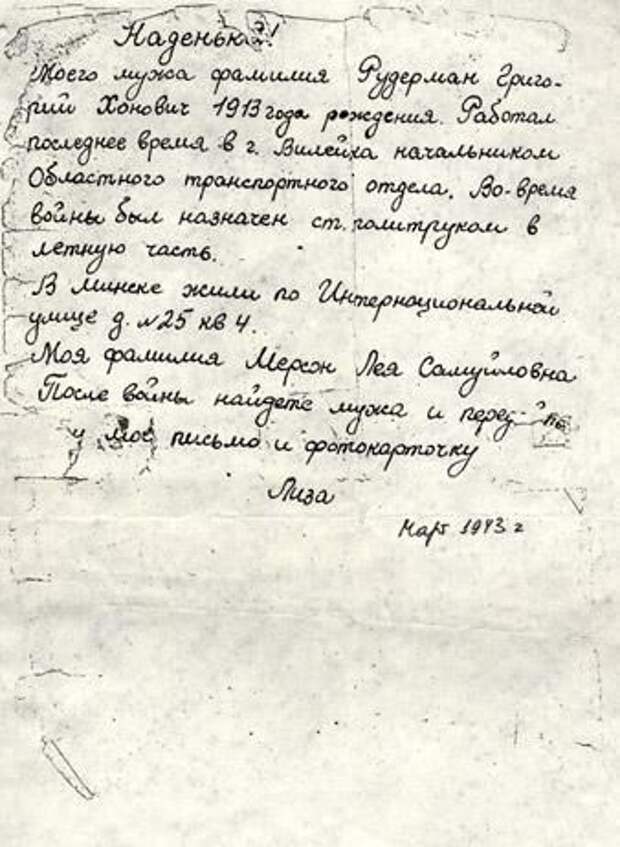 Наденька!
Моего мужа фамилия Рудерман Григо-
рий Хонович 1913 года рождения. Работал
последнее время в г. Вилейка начальником
Областного транспортного отдела. Во-время
войны был назначен ст. политруком в
летную часть.
В Минске жили по Интернациональной
улице д. №25 кв 4.
Моя фамилия Мерсон Лея Самуйловна
После войны найдете мужа и перед
у мое письмо и фотокарточку
Лиза
Март 1943 г